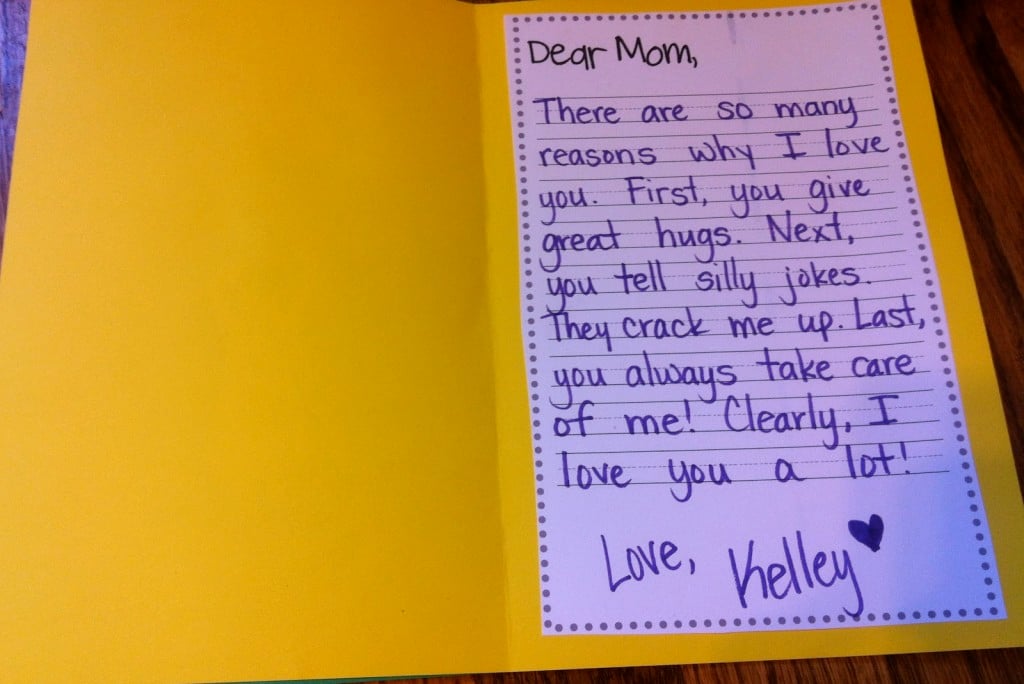 Dear Mom,
There are so many
reasons why I love
you. First, you give
great hugs. Next,
you tell silly jokes.
They crack me up. Last,
you always take care
of me! Clearly, I
love you a lot!
Love, Kelley